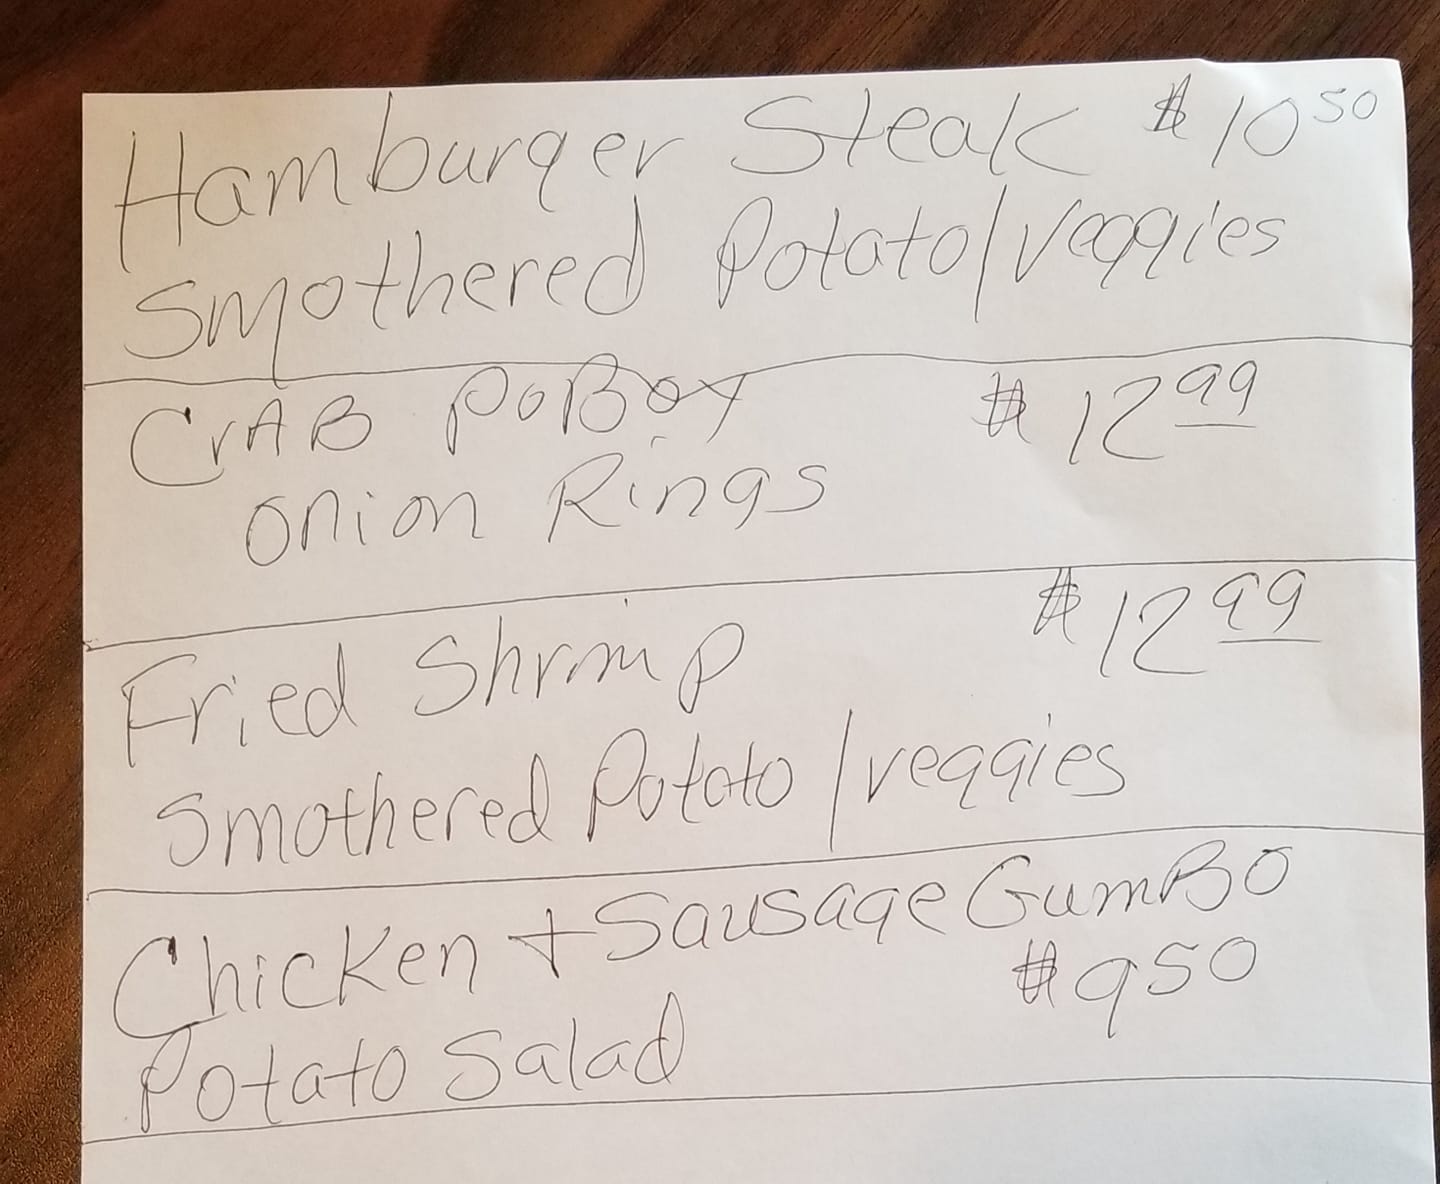 Hamburger Steak $10 50
Smothered Potato/veggies
CrAB PoBoy $12 99
onion Rings
Fried Shrimp $12 99
Smothered Potato/veggies
Chicken + Sausage GumBo
$9 50
Potato Salad